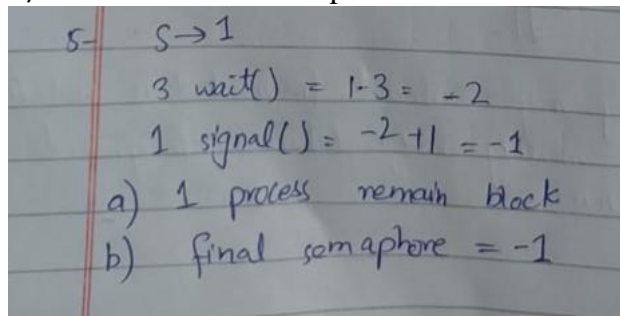 5- S→1
3 wait() = 1-3 = -2
1 signal() = -2+1 = -1
a) 1 process remain block
b) final semaphore = -1